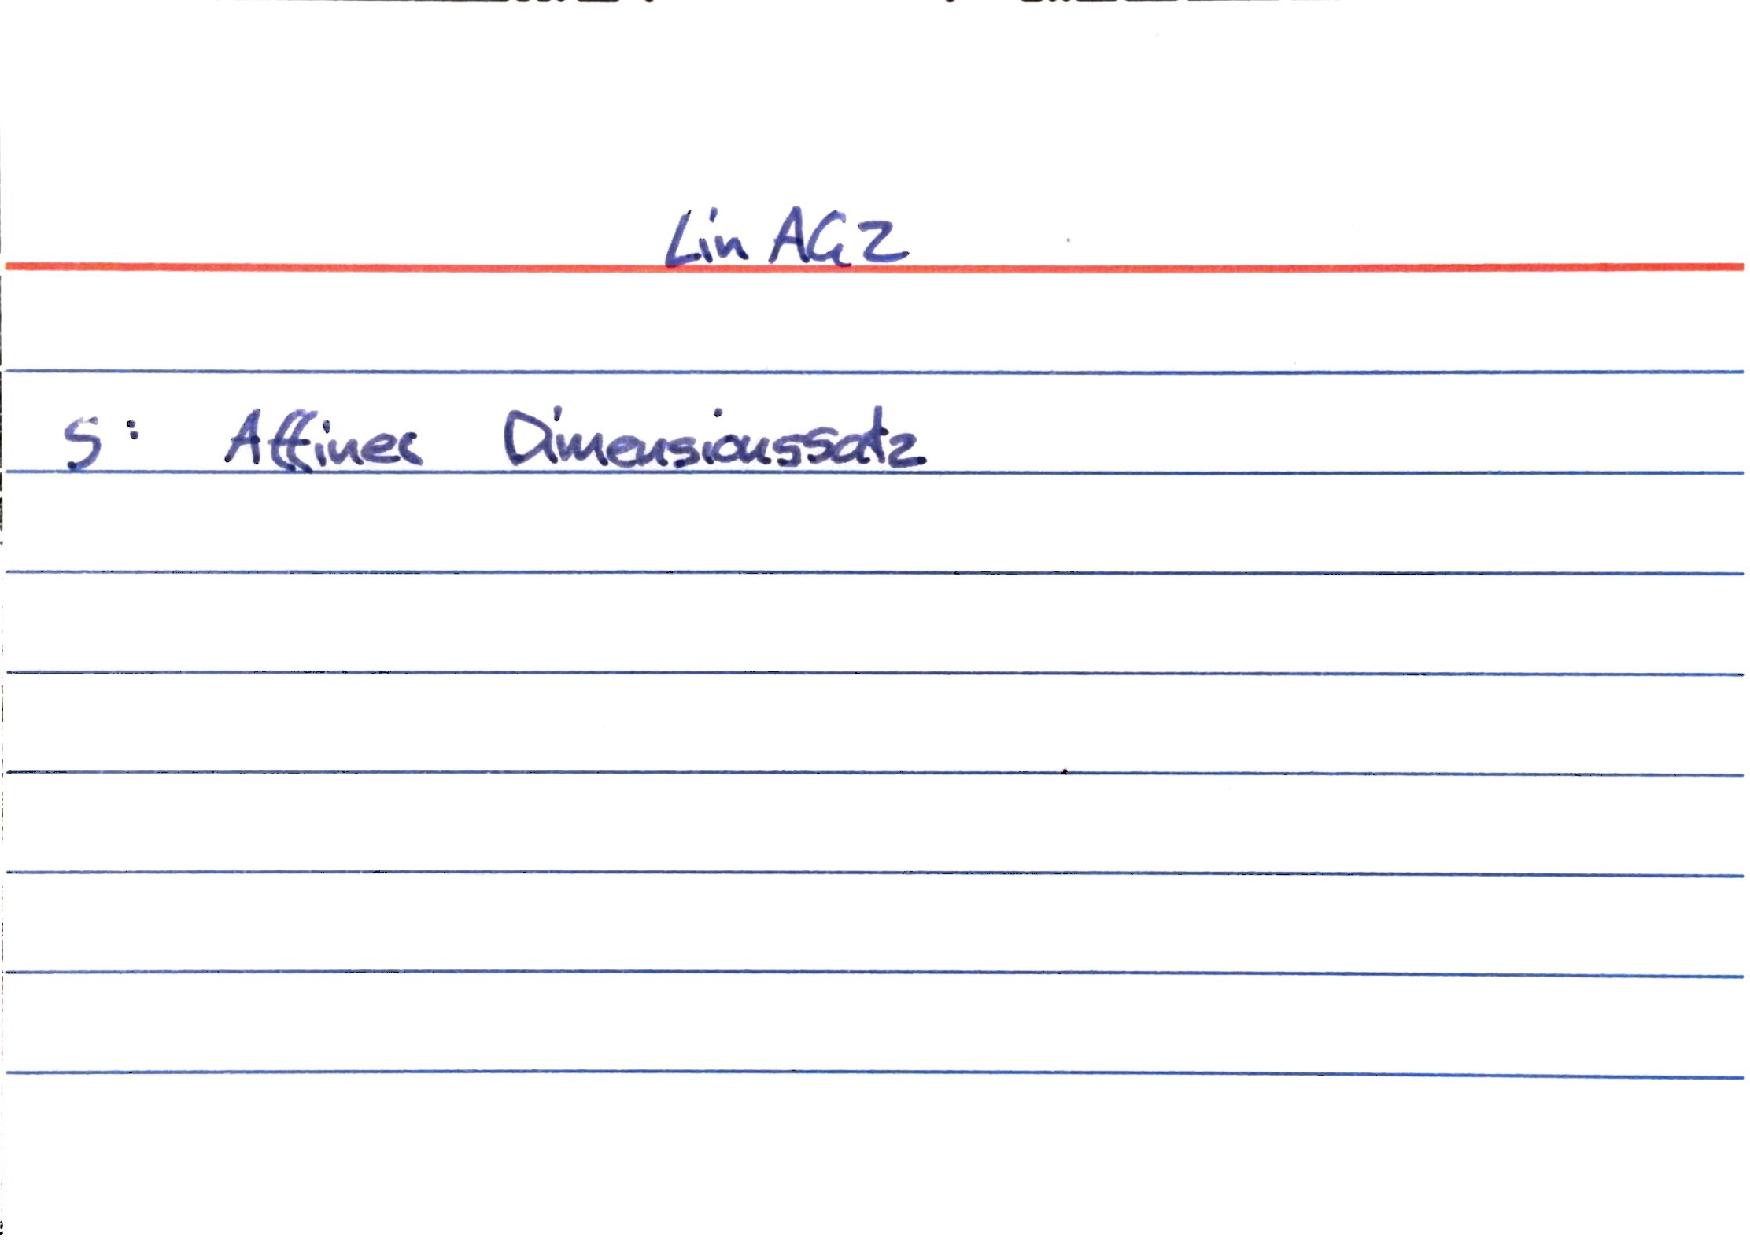 Lin AG 2
S: Affiner Dimensionssatz